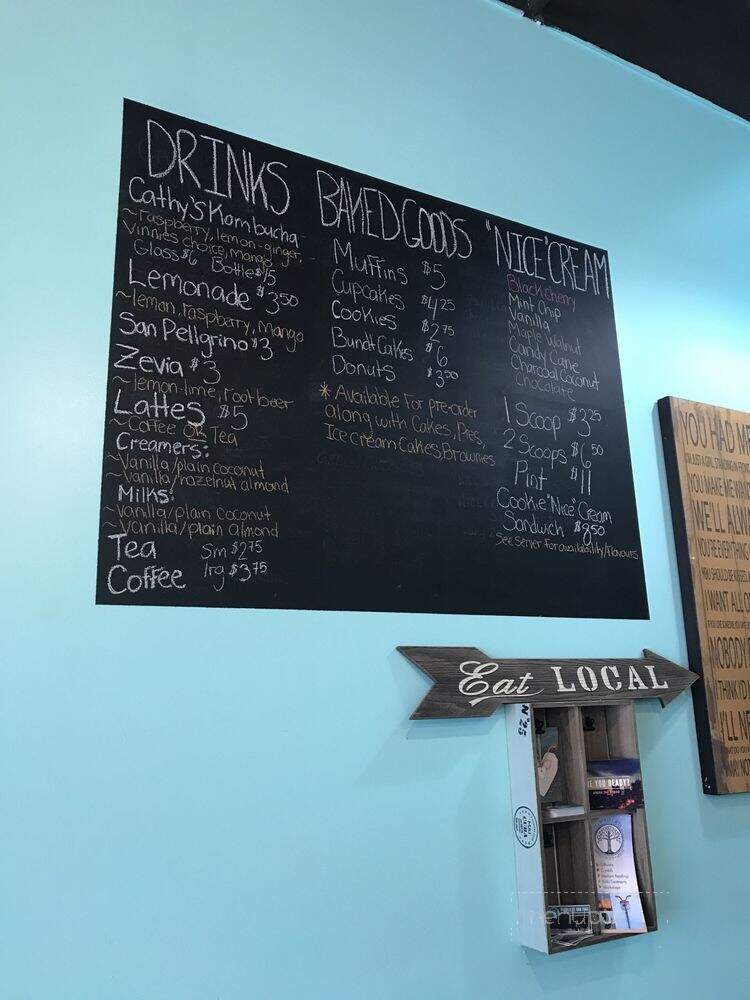 DRINKS
Cathy's Kombucha
~raspberry, lemon-ginger,
Vinnies choice, mango
Glass $6 Bottle $15
Lemonade $3.50
~lemon, raspberry, mango
San Pellgrino $3
Zevia $3
~lemon-lime, root beer
Lattes $5
~Coffee OR Tea
Creamers:
~Vanilla/plain coconut
~Vanilla/hazelnut almond
Milks:
~Vanilla/plain coconut
~Vanilla/plain almond
Tea Sm $2.75
Coffee lrg $3.75
BAKED GOODS
Muffins $5
Cupcakes $4.25
Cookies $2.75
Bundt Cakes $6
Donuts $3.50
* Available For pre-order
along with Cakes, Pies,
Ice cream Cakes, Brownies
"NICE" CREAM
Black cherry
Mint Chip
Vanilla
Maple Walnut
Candy Cane
Charcoal Coconut
Chocolate
1 Scoop $3.25
2 Scoops $6.50
Pint $11
Cookie "Nice" Cream
Sandwich $8.50
See Server For availability/Flavours
Eat LOCAL
N°25
CUBA
E YOU READY?
YOU HAD ME
YOU MAKE ME WAN
WE'LL ALW
YOU'RE EVERYTHIN
I WANT ALL OF
NOBODY P
I THINK I'D
I'LL NE